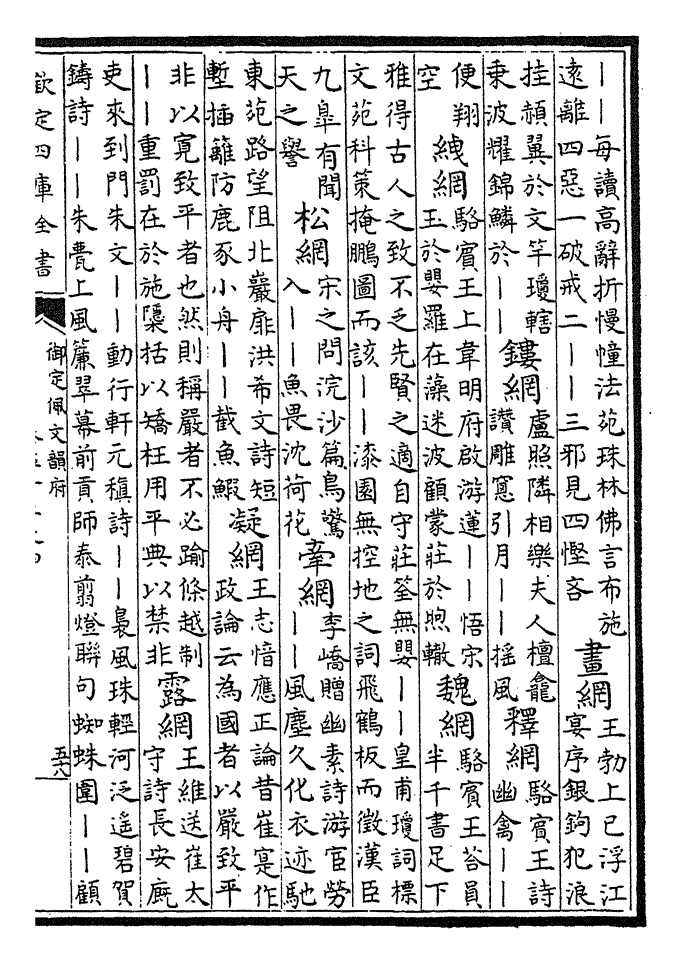 ｜｜每讀高辭折慢幢法苑珠林佛言布施
遠離四惡一破戒二｜｜三邪見四慳吝
畫網
王勃上已浮江
宴序銀鉤犯浪
挂頳翼於文竿瓊轄
乗波耀錦鱗於｜｜
鏤網
盧照隣相樂夫人檀龕
讚雕窻引月｜｜揺風
釋網
駱賓王詩
幽禽｜｜
便翔
空
絏網
駱賓王上韋明府啟游蓮｜｜悟宋
玉於嬰羅在藻迷波顧蒙莊於煦轍
魏網
駱賓王荅員
半千書足下
雅得古人之致不乏先賢之適自守莊筌無嬰｜｜皇甫瓊詞標
文苑科策掩鵬圖而該｜｜漆園無控地之詞飛鶴板而徵漢臣
九臯有聞
天之譽
松網
宋之問浣沙篇鳥驚
入｜｜魚畏沈荷花
牽網
李嶠贈幽素詩游宦勞
｜｜風塵久化衣迹馳
東苑路望阻北巖扉洪希文詩短
塹插籬防鹿豕小舟｜｜截魚鰕
凝網
王志愔應正論昔崔寔作
政論云為國者以嚴致平
非以寛致平者也然則稱嚴者不必踰條越制
｜｜重罰在於施隱括以矯枉用平典以禁非
露網
王維送崔太
守詩長安廐
吏來到門朱文｜｜動行軒元稹詩｜｜裊風珠輕河泛遥碧賀
鑄詩｜｜朱甍上風簾翠幕前貢師泰翦燈聯句蜘蛛圍｜｜顧
欽定四庫全書
御定佩文韻府